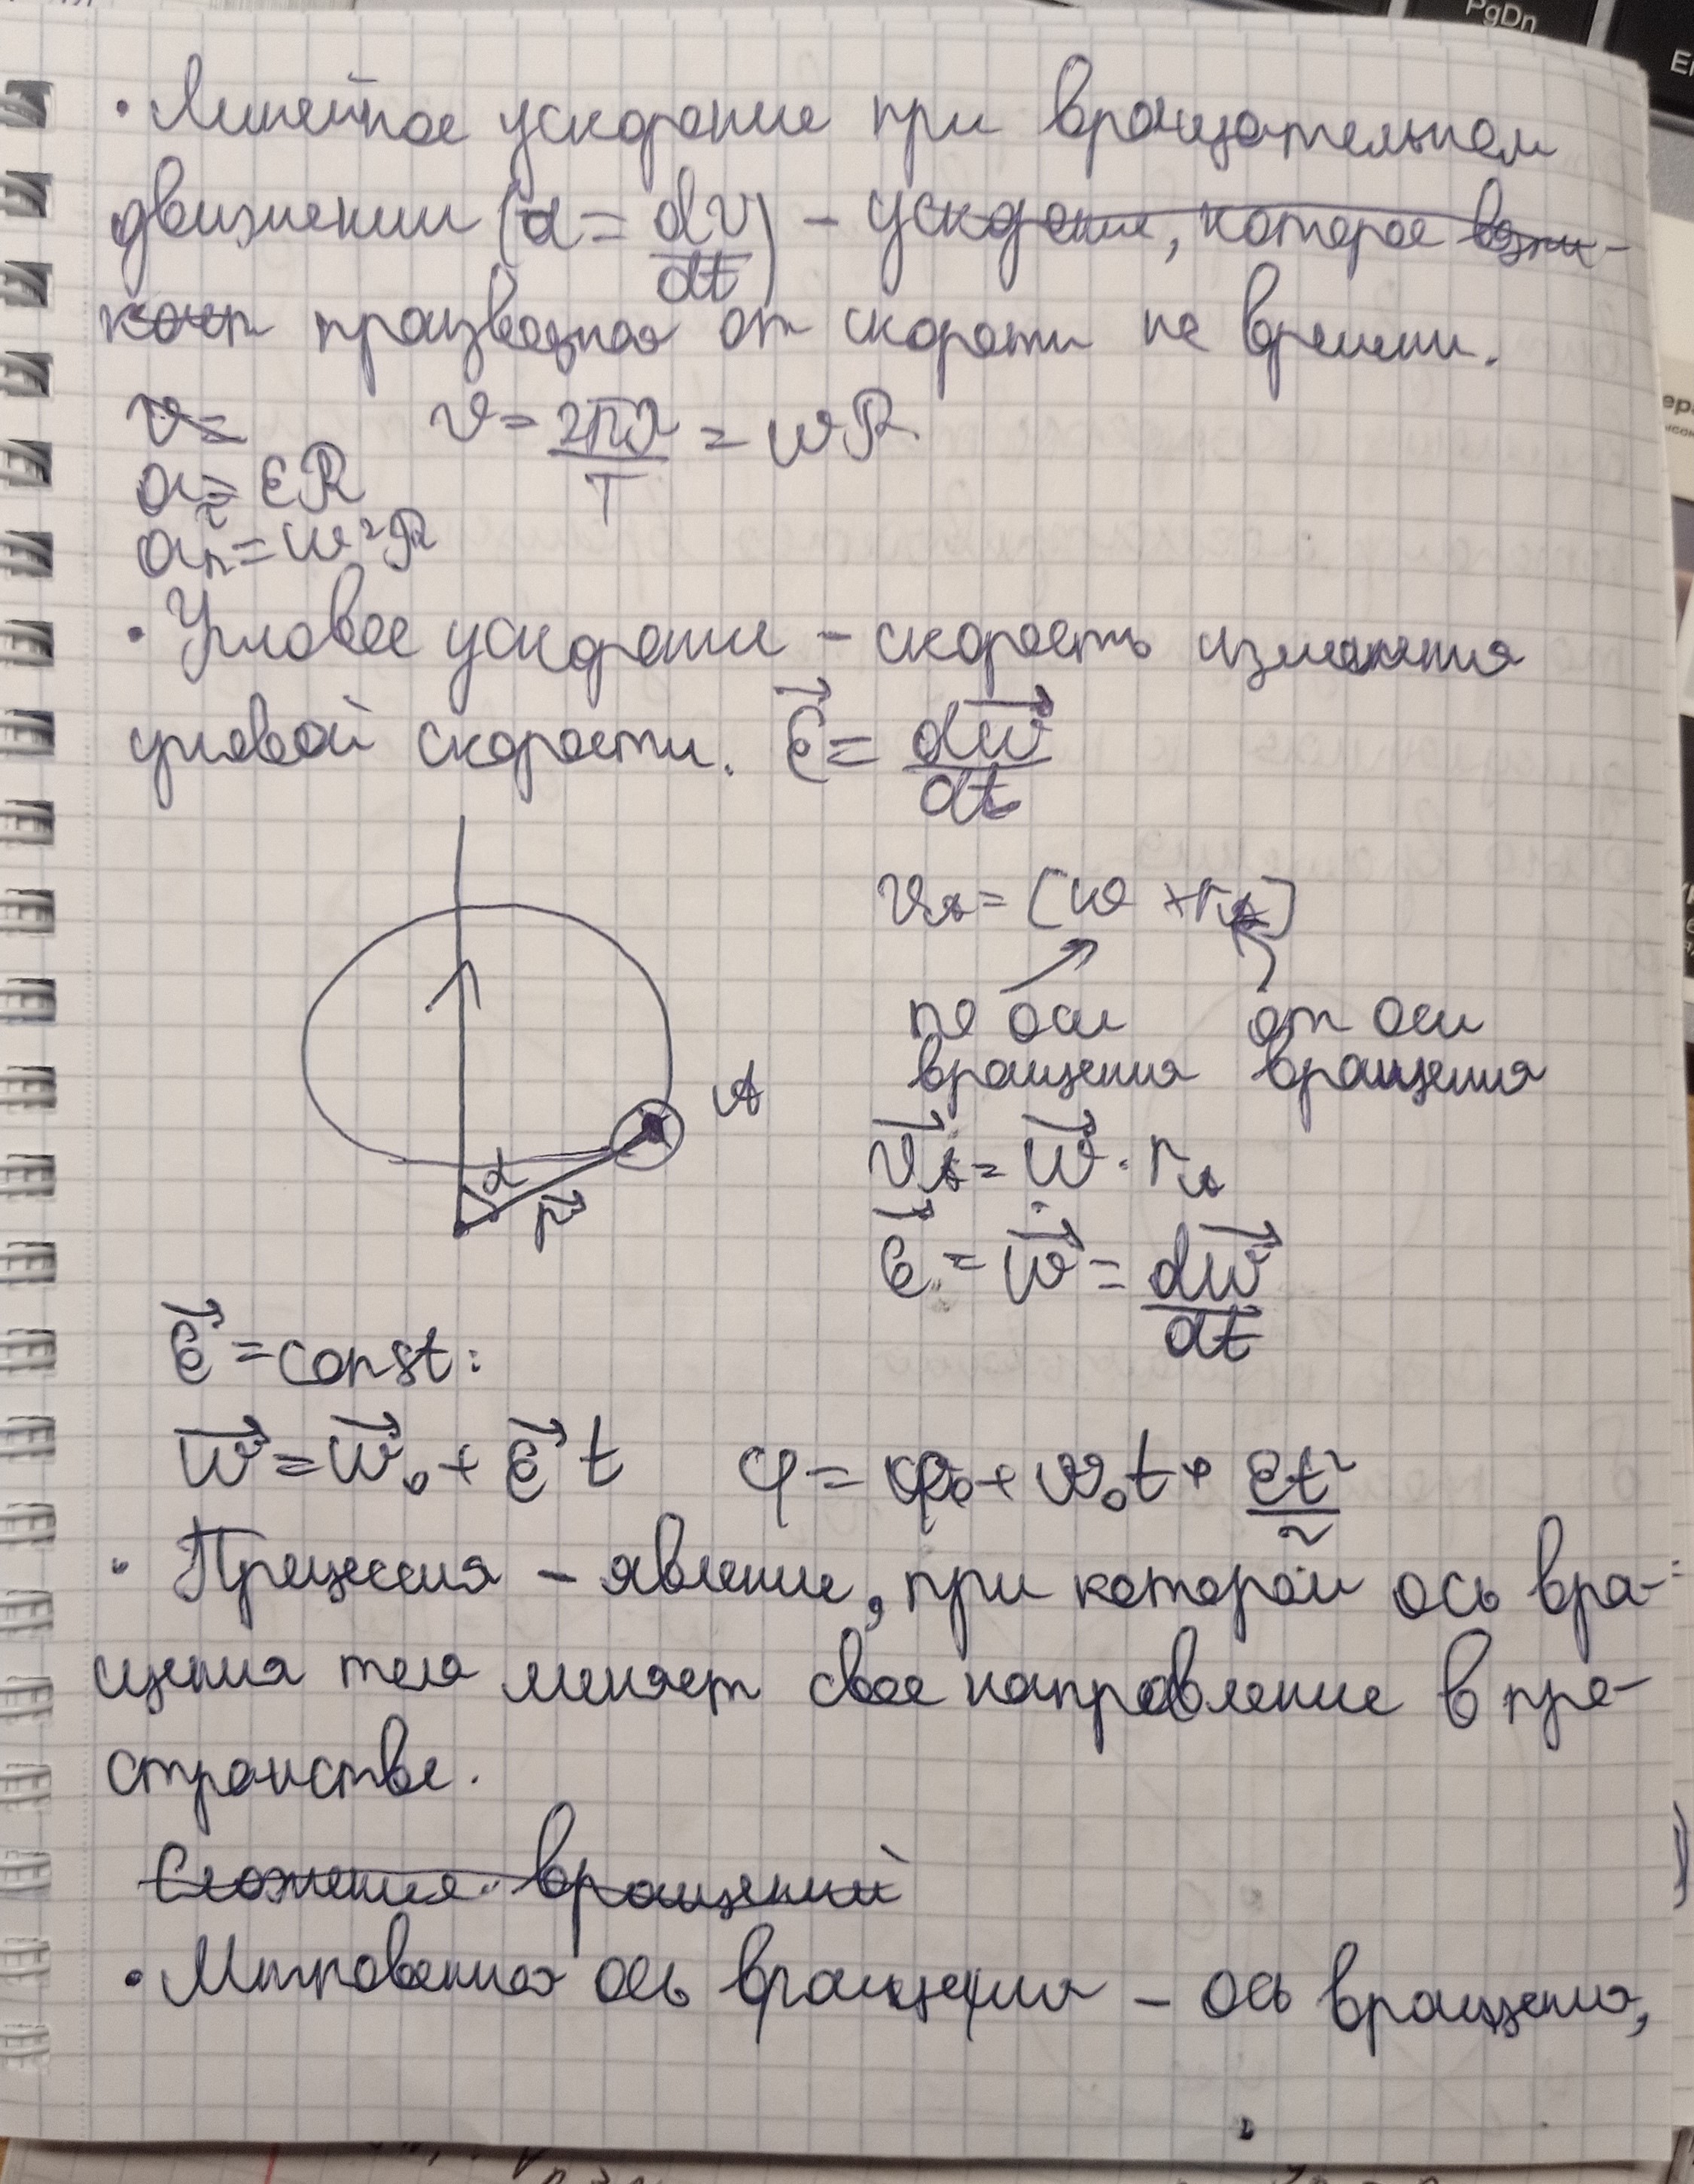 PgDn
• Линейное ускорение при вращательном
движении (a = dv/dt) – ускорение, которое возни-
кает производная от скорости по времени.
v=
v = 2πR/T = wR
a_τ = εR
a_n = w²R
• Угловое ускорение – скорость изменения
угловой скорости. ε⃗ = dw⃗/dt
v_A = [w × r_A]
по оси от оси
вращения вращения
A
α
r⃗
v⃗_A = w⃗ · r_A
ε⃗ = w⃗̇ = dw⃗/dt
ε⃗ = const:
w⃗ = w⃗₀ + ε⃗ t φ = φ₀ + w₀t + εt²/2
• Прецессия – явление, при которой ось вра-
щения тела меняет свое направление в про-
странстве.
Сложение вращений
• Мгновенная ось вращения – ось вращения,